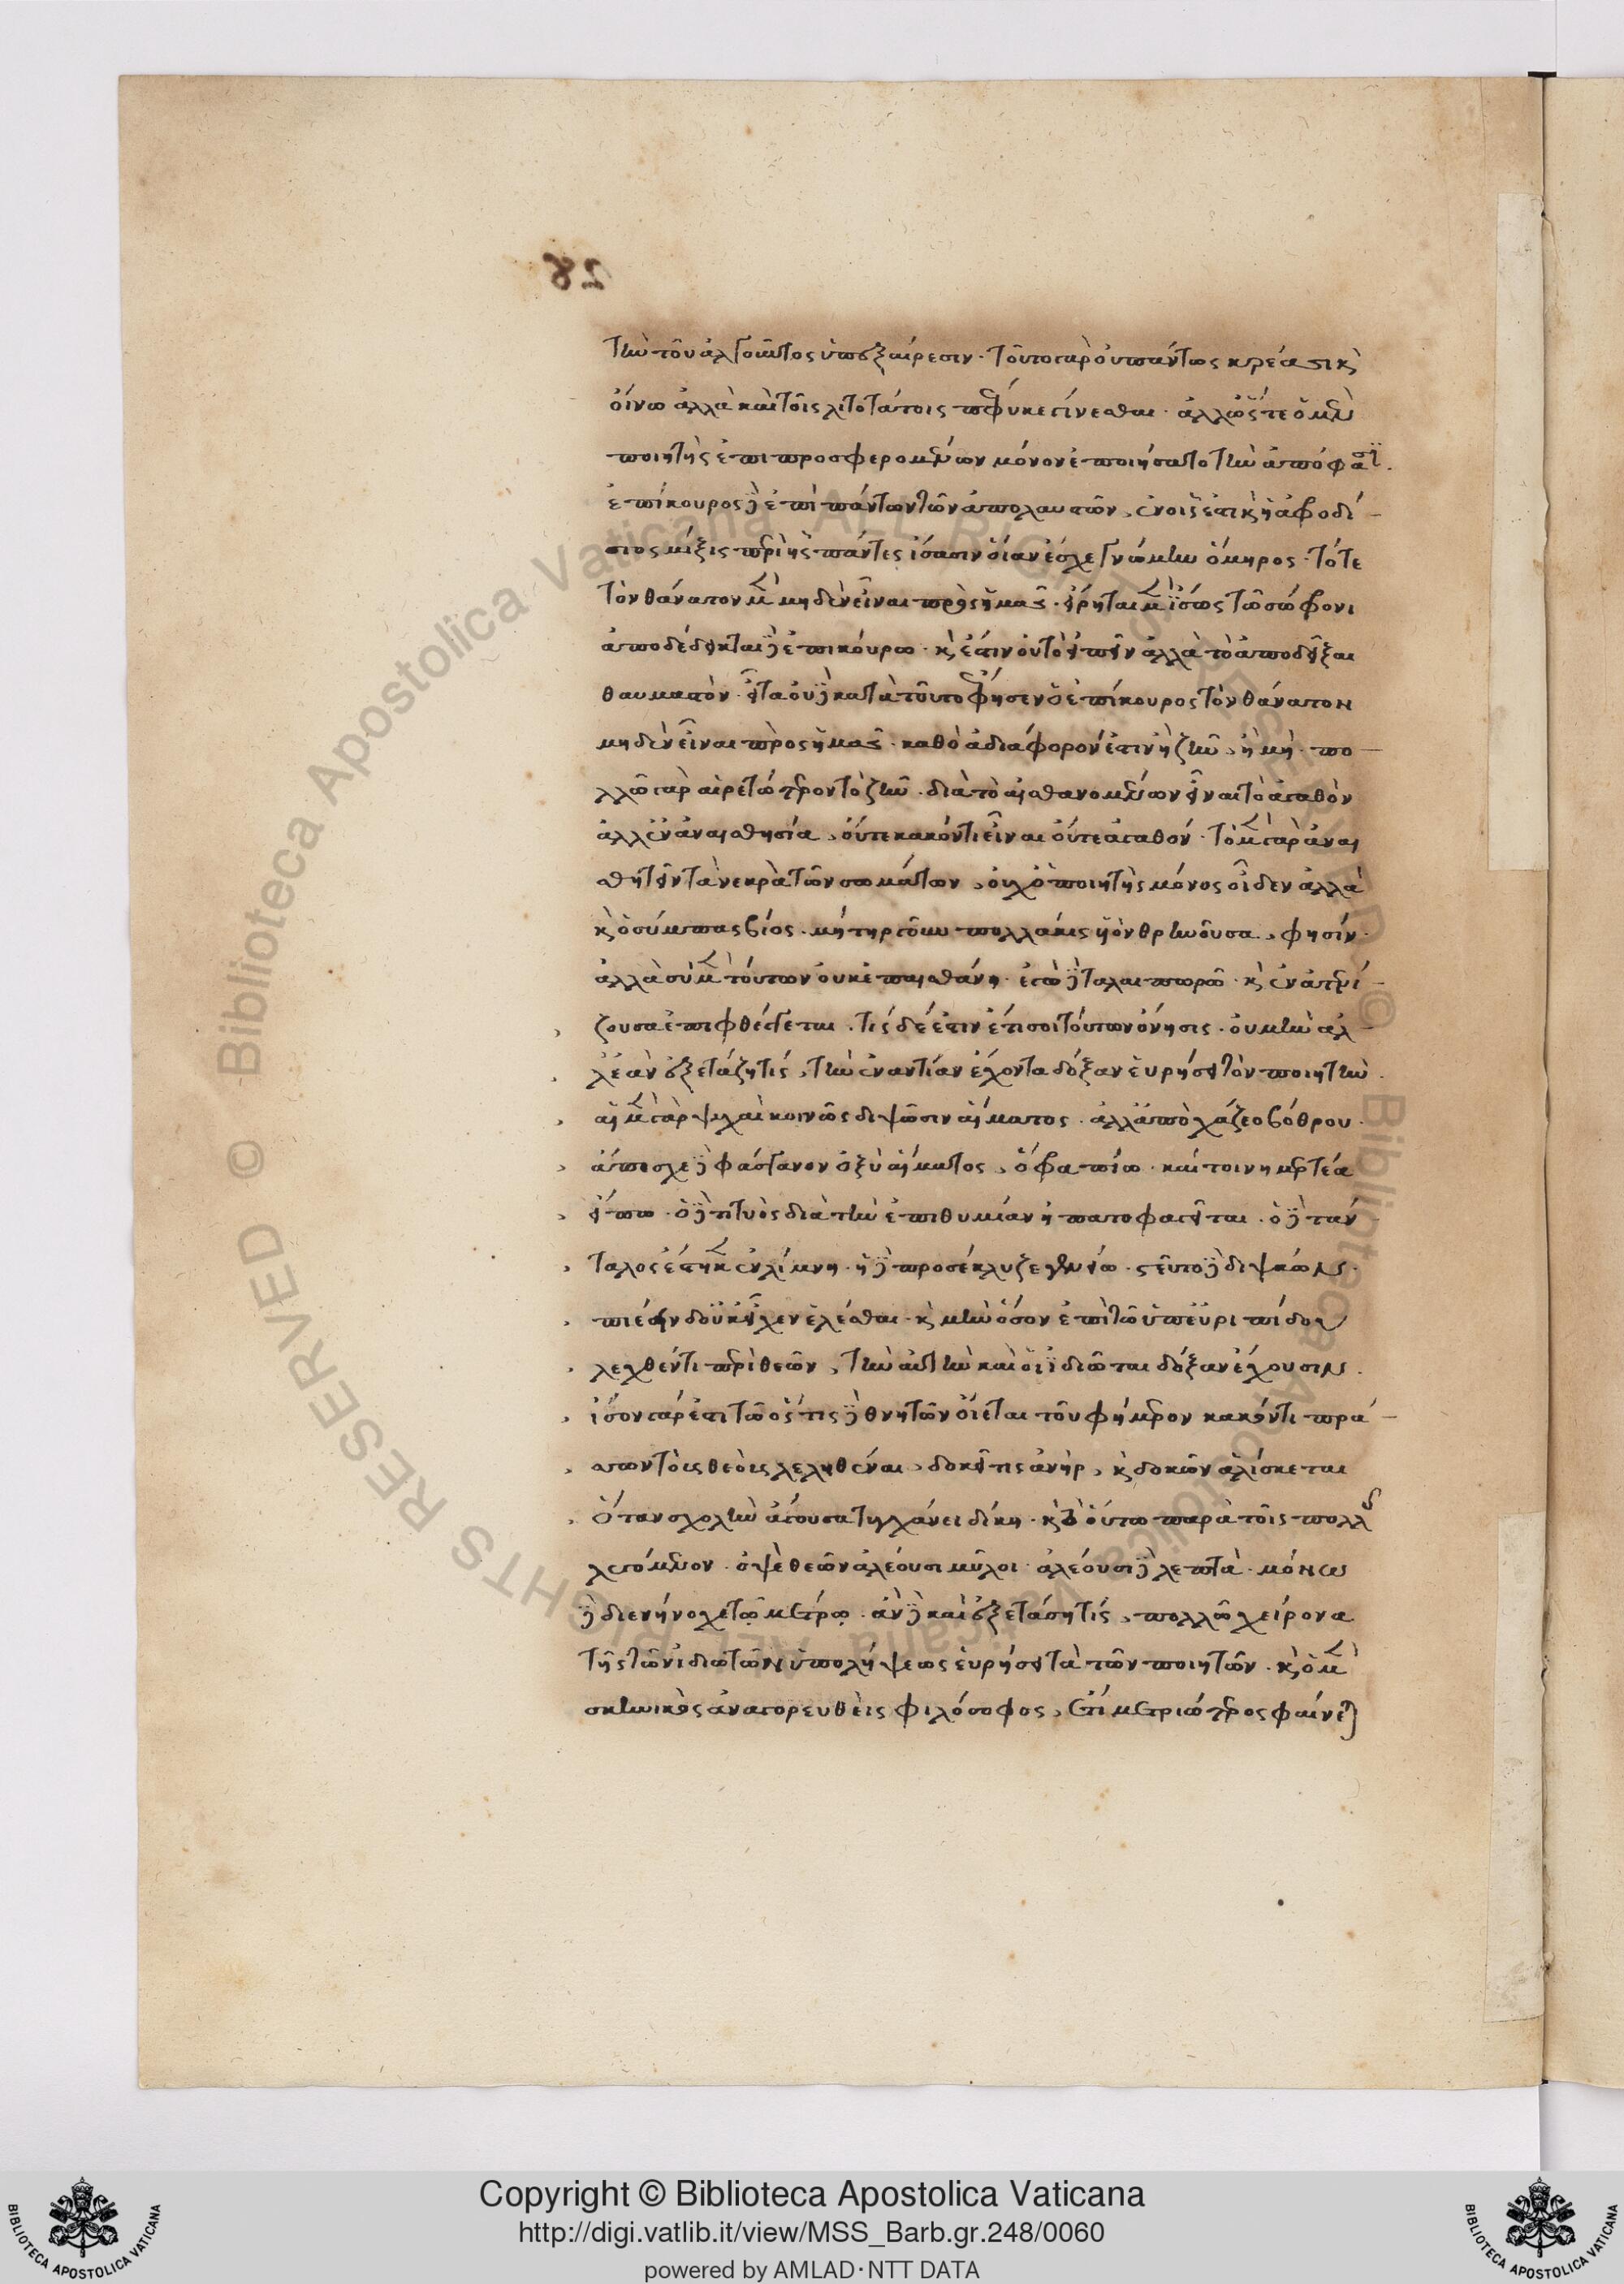 28
τὴν τοῦ ἀλγοῦντος ὑπεξαίρεσιν. τοῦτο γὰρ οὐ πάντως κρέασι κ̀
οἴνω ἀλλὰ καὶ τοῖς λιτοτάτοις πέφυκε γίνεσθαι. ἄλλως τε ὁ μὲν
ποιητὴς ἐπὶ προσφερομένων μόνον ἐποιήσατο τὴν ἀπόφασι.
ἐπίκουρος δὲ ἐπὶ πάντων τῶν ἀπολαυστῶν, ἐν οἷς ἐστι κ̀ ἡ ἀφροδί
σιος μίξις περὶ ἧς πάντες ἴσασιν οἵαν ἔσχε γνώμην ὅμηρος. τότε
τὸν θάνατον μὲν μηδὲν εἶναι πρὸς ἡμᾶς. εἴρηται μὲν ἴσως τῶ σώφρονι
ἀποδέδεικται δὲ ἐπικούρω. κ̀ ἔστιν οὐ τὸ εἰπεῖν ἀλλὰ τὸ ἀποδεῖξαι
θαυμαστὸν. εἶτα οὐδὲ κατὰ τοῦτο φησεν ὁ ἐπίκουρος τὸν θάνατον
μηδὲν εἶναι πρὸς ἡμᾶς. καθὸ ἀδιάφορόν ἐστιν ἢ ζῆν, ἢ μή. πο
λλῶ γὰρ αἱρετώτερον τὸ ζῆν. διὰ τὸ αἰσθανομένων εἶναι τὸ ἀγαθὸν
ἀλλ' ἐν ἀναισθησία, οὔτε κακόν τι εἶναι οὔτε ἀγαθόν. τὸ μὲν γὰρ ἀναι
σθητεῖν τὰ νεκρὰ τῶν σωμάτων, οὐχ ὁ ποιητὴς μόνος οἶδεν ἀλλὰ
κ̀ ὁ σύμπας βίος. μήτηρ γοῦν πολλάκις ὑὸν θρηνοῦσα, φησίν.
ἀλλὰ σὺ μὲν τούτων οὐκ ἐπαισθάνη. ἐγὼ δὲ ταλαιπωρῶ. κ̀ ἐνατενί
ζουσα ἐπιφθέγγεται. τίς δέ ἐστιν ἔτι σοι τούτων ὄνησις. οὐ μὴν ἀλ
λ' ἐὰν ἐξετάζη τίς, τὴν ἐναντίαν ἔχοντα δόξαν εὑρήσει τὸν ποιητὴν.
αἱ μὲν γὰρ ψυχαὶ κοινῶς διψῶσιν αἵματος. ἀλλ' ἀπὸ χάζεο βόθρου.
ἄπισχε δὲ φάσγανον ὀξὺ αἵματος, ὄφρα πίω. καί τοι νημερτέα
εἴπω. ὁ δὲ τιτυὸς διὰ τὴν ἐπιθυμίαν ἡπατοφαγεῖται. ὁ δὲ τάν
ταλος ἕστηκεν ἐν λίμνη. ἡ δὲ προσέκλυζε γενείω. στεῦτο δὲ διψάων.
πιέειν δ' οὐκ εἶχεν ἑλέσθαι. κ̀ μὴν ὅσον ἐπὶ τῶ ὑπ' εὐριπίδου
λεχθέντι περὶ θεῶν, τὴν αὐτὴν καὶ οἱ ἰδιῶται δόξαν ἔχουσιν.
ἴσον γάρ ἐστι τῶ ὅς τις δὲ θνητῶν οἴεται τοὐφήμερον κακόν τι πρά
σσων τοὺς θεοὺς λεληθέναι, δοκεῖ τις ἀνήρ, κ̀ δοκῶν ἁλίσκεται
ὅταν σχολὴν ἄγουσα τυγχάνει δίκη. κ̀ τὸ οὕτω παρὰ τοῖς πολλοῖς
λεγόμενον. ὀψὲ θεῶν ἀλέουσι μύλοι. ἀλέουσι δὲ λεπτὰ. μόνω
δὲ διενήνοχε τῶ μέτρω. ἂν δὲ καὶ ἐξετάση τίς, πολλῶ χείρονα
τῆς τῶν ἰδιωτῶν ὑπολήψεως εὑρήσει τὰ τῶν ποιητῶν. κ̀ ὁ μὲν
σκηνικὸς ἀναγορευθεὶς φιλόσοφος, ἔτι μετριώτερος φαίνεται
Copyright © Biblioteca Apostolica Vaticana
http://digi.vatlib.it/view/MSS_Barb.gr.248/0060
powered by AMLAD·NTT DATA
BIBLIOTECA APOSTOLICA VATICANA
BIBLIOTECA APOSTOLICA VATICANA